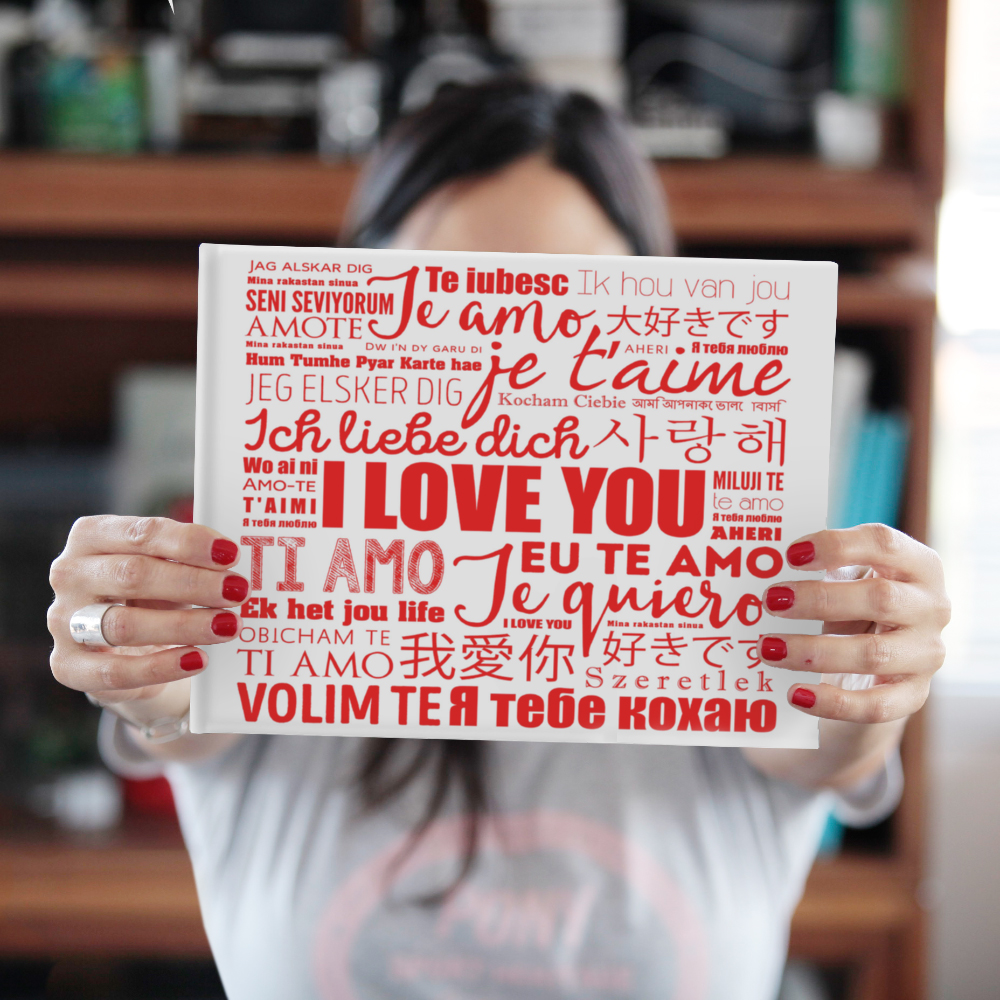 JAG ALSKAR DIG
Te iubesc
Ik hou van jou
Mina rakastan sinua
SENI SEVIYORUM
Te amo
大好きです
AMOTE
Mina rakastan sinua
DW I'N DY GARU DI
je t'aime
AHERI
Я тебя люблю
Hum Tumhe Pyar Karte hae
JEG ELSKER DIG
Kocham Ciebie
Ich liebe dich
사랑해
Wo ai ni
I LOVE YOU
MILUJI TE
AMO-TE
te amo
T'AIMI
Я тебя люблю
Я тебя люблю
AHERI
TI AMO
EU TE AMO
Te quiero
Ek het jou life
I LOVE YOU
Mina rakastan sinua
OBICHAM TE
我愛你
好きです
TI AMO
Szeretlek
VOLIM TE
Я тебе кохаю